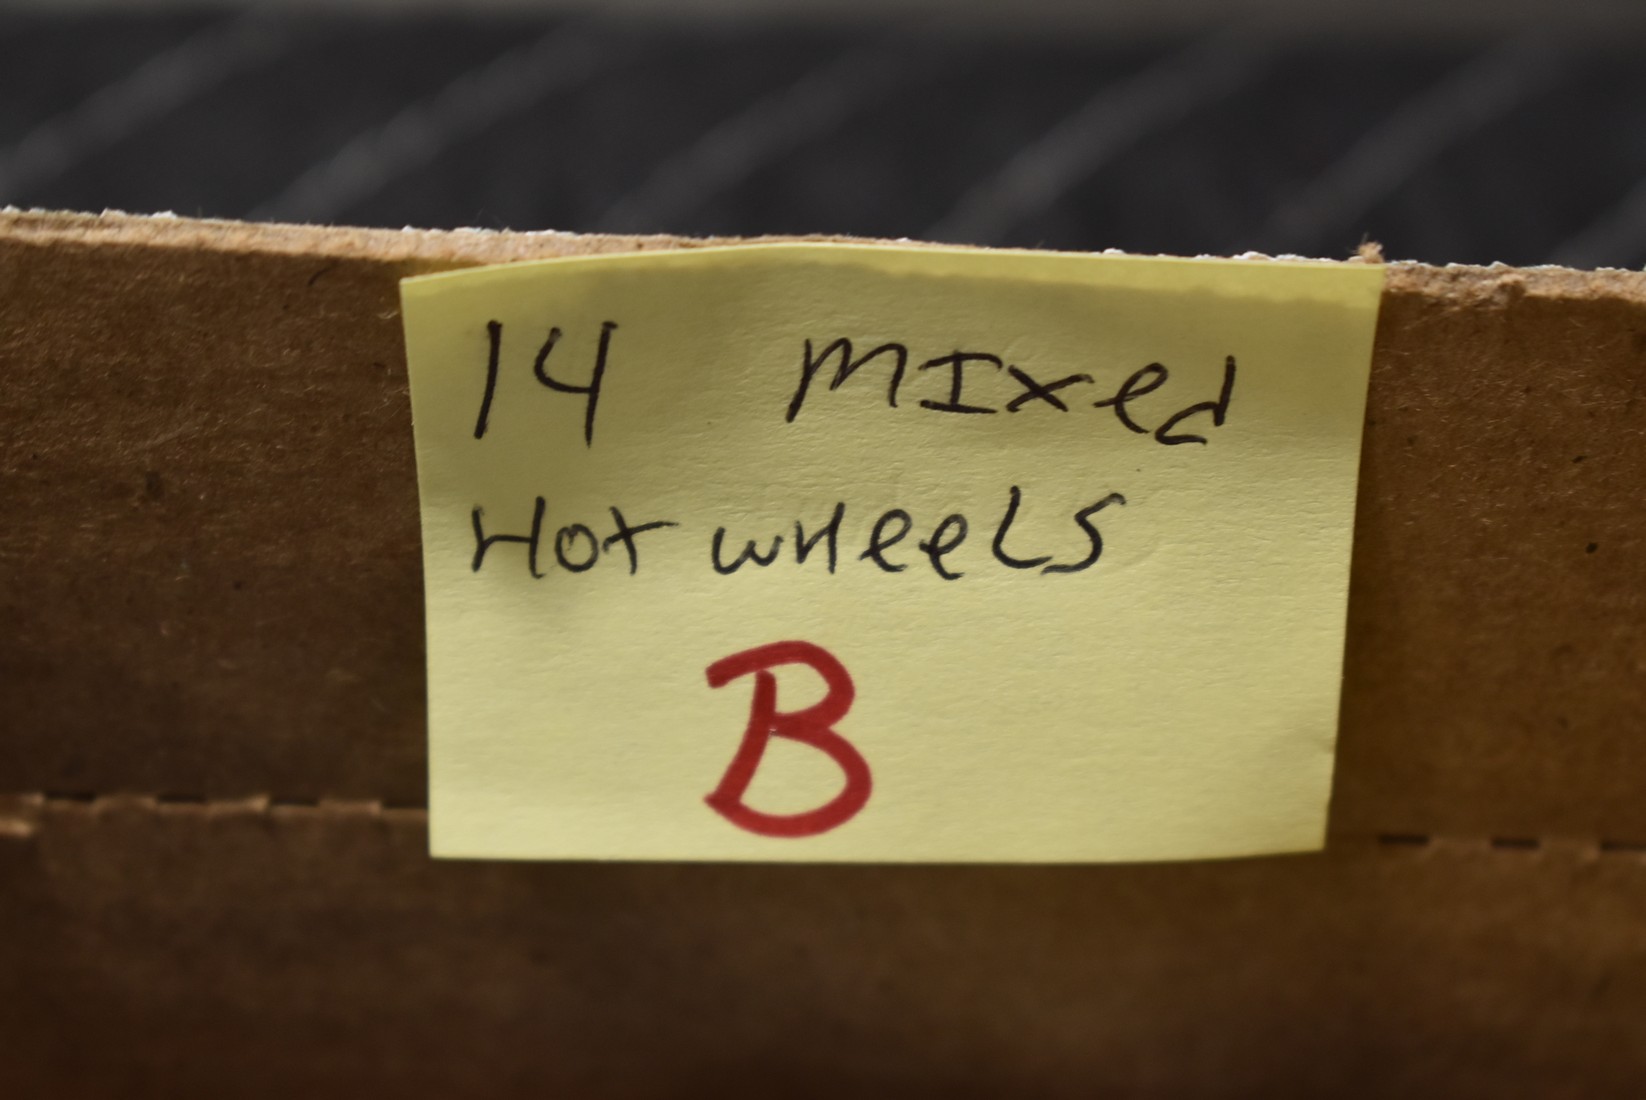 14 MIXed
Hot wHeeLS
B